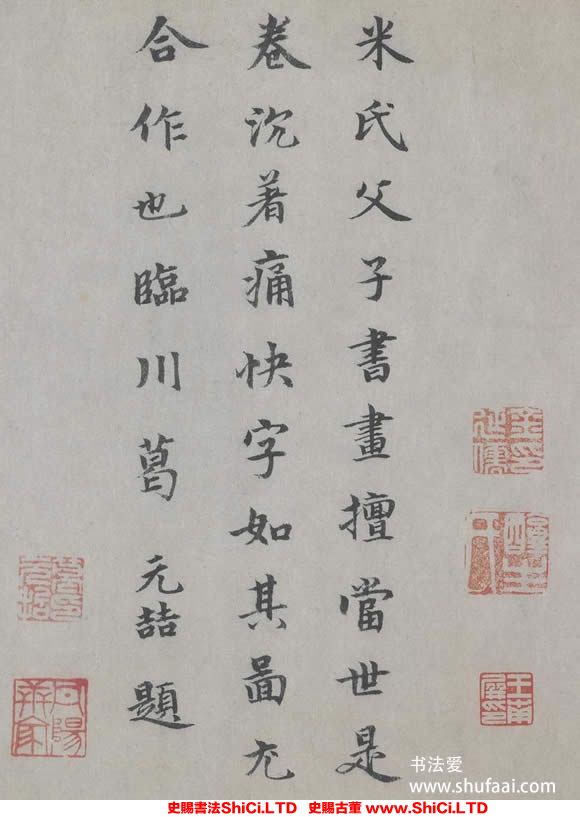 米氏父子書畫擅當世是
卷沉著痛快字如其畵尤
合作也臨川葛元喆題
书法爱
www.shufaai.com
史賜書法ShiCi.LTD 史賜古董 www.ShiCi.LTD